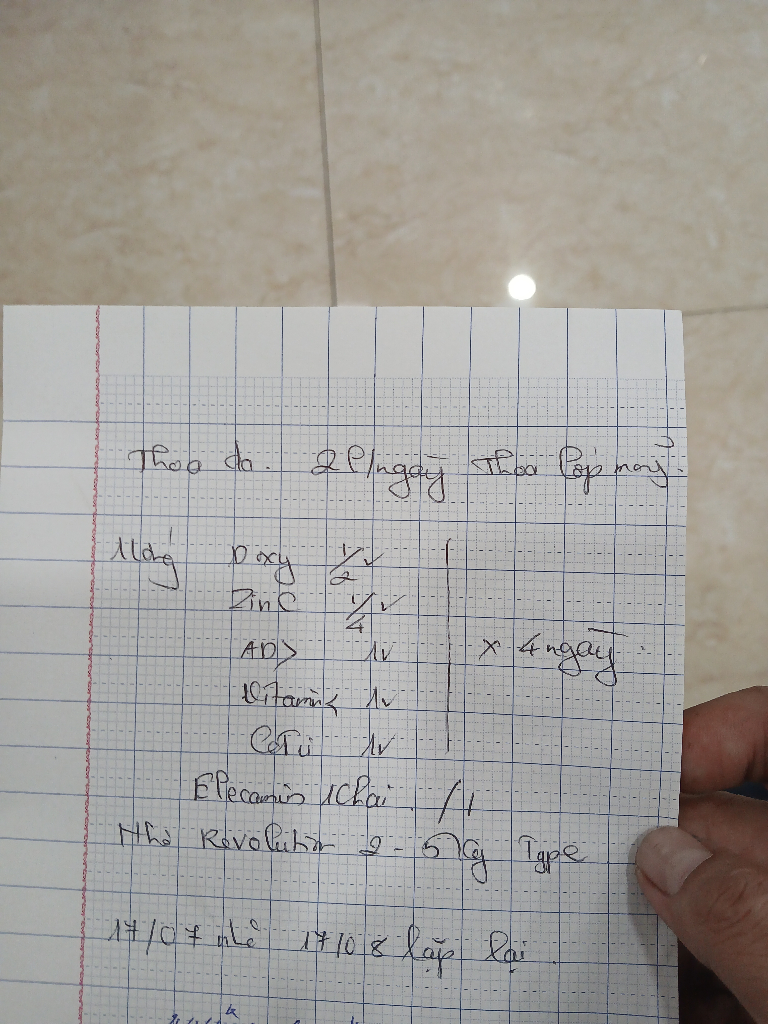 Thoa da. 2 l/ngày Thoa lớp mỏng.
Uống Doxy 1/2 v
Zinc 1/4 v
AD> 1v
x 4 ngày.
Vitamin 1v
1v
1 Chai. /1
Nhỏ Revolution 2 - 5 Kg Type
17/07 nhỏ 17/08 lặp lại.